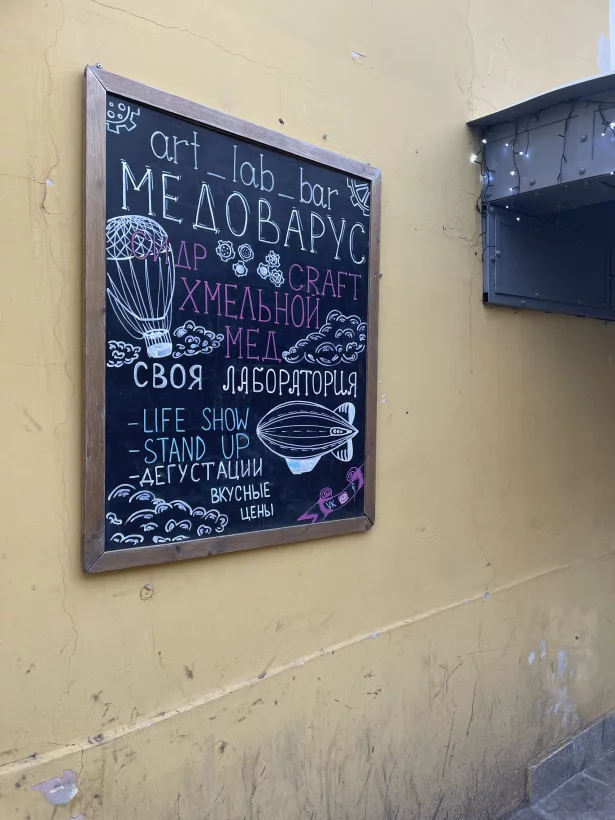 art_lab_bar
МЕДОВАРУС
СИДР
CRAFT
ХМЕЛЬНОЙ
МЁД
СВОЯ ЛАБОРАТОРИЯ
-LIFE SHOW
-STAND UP
-ДЕГУСТАЦИИ
ВКУСНЫЕ
ЦЕНЫ
VK